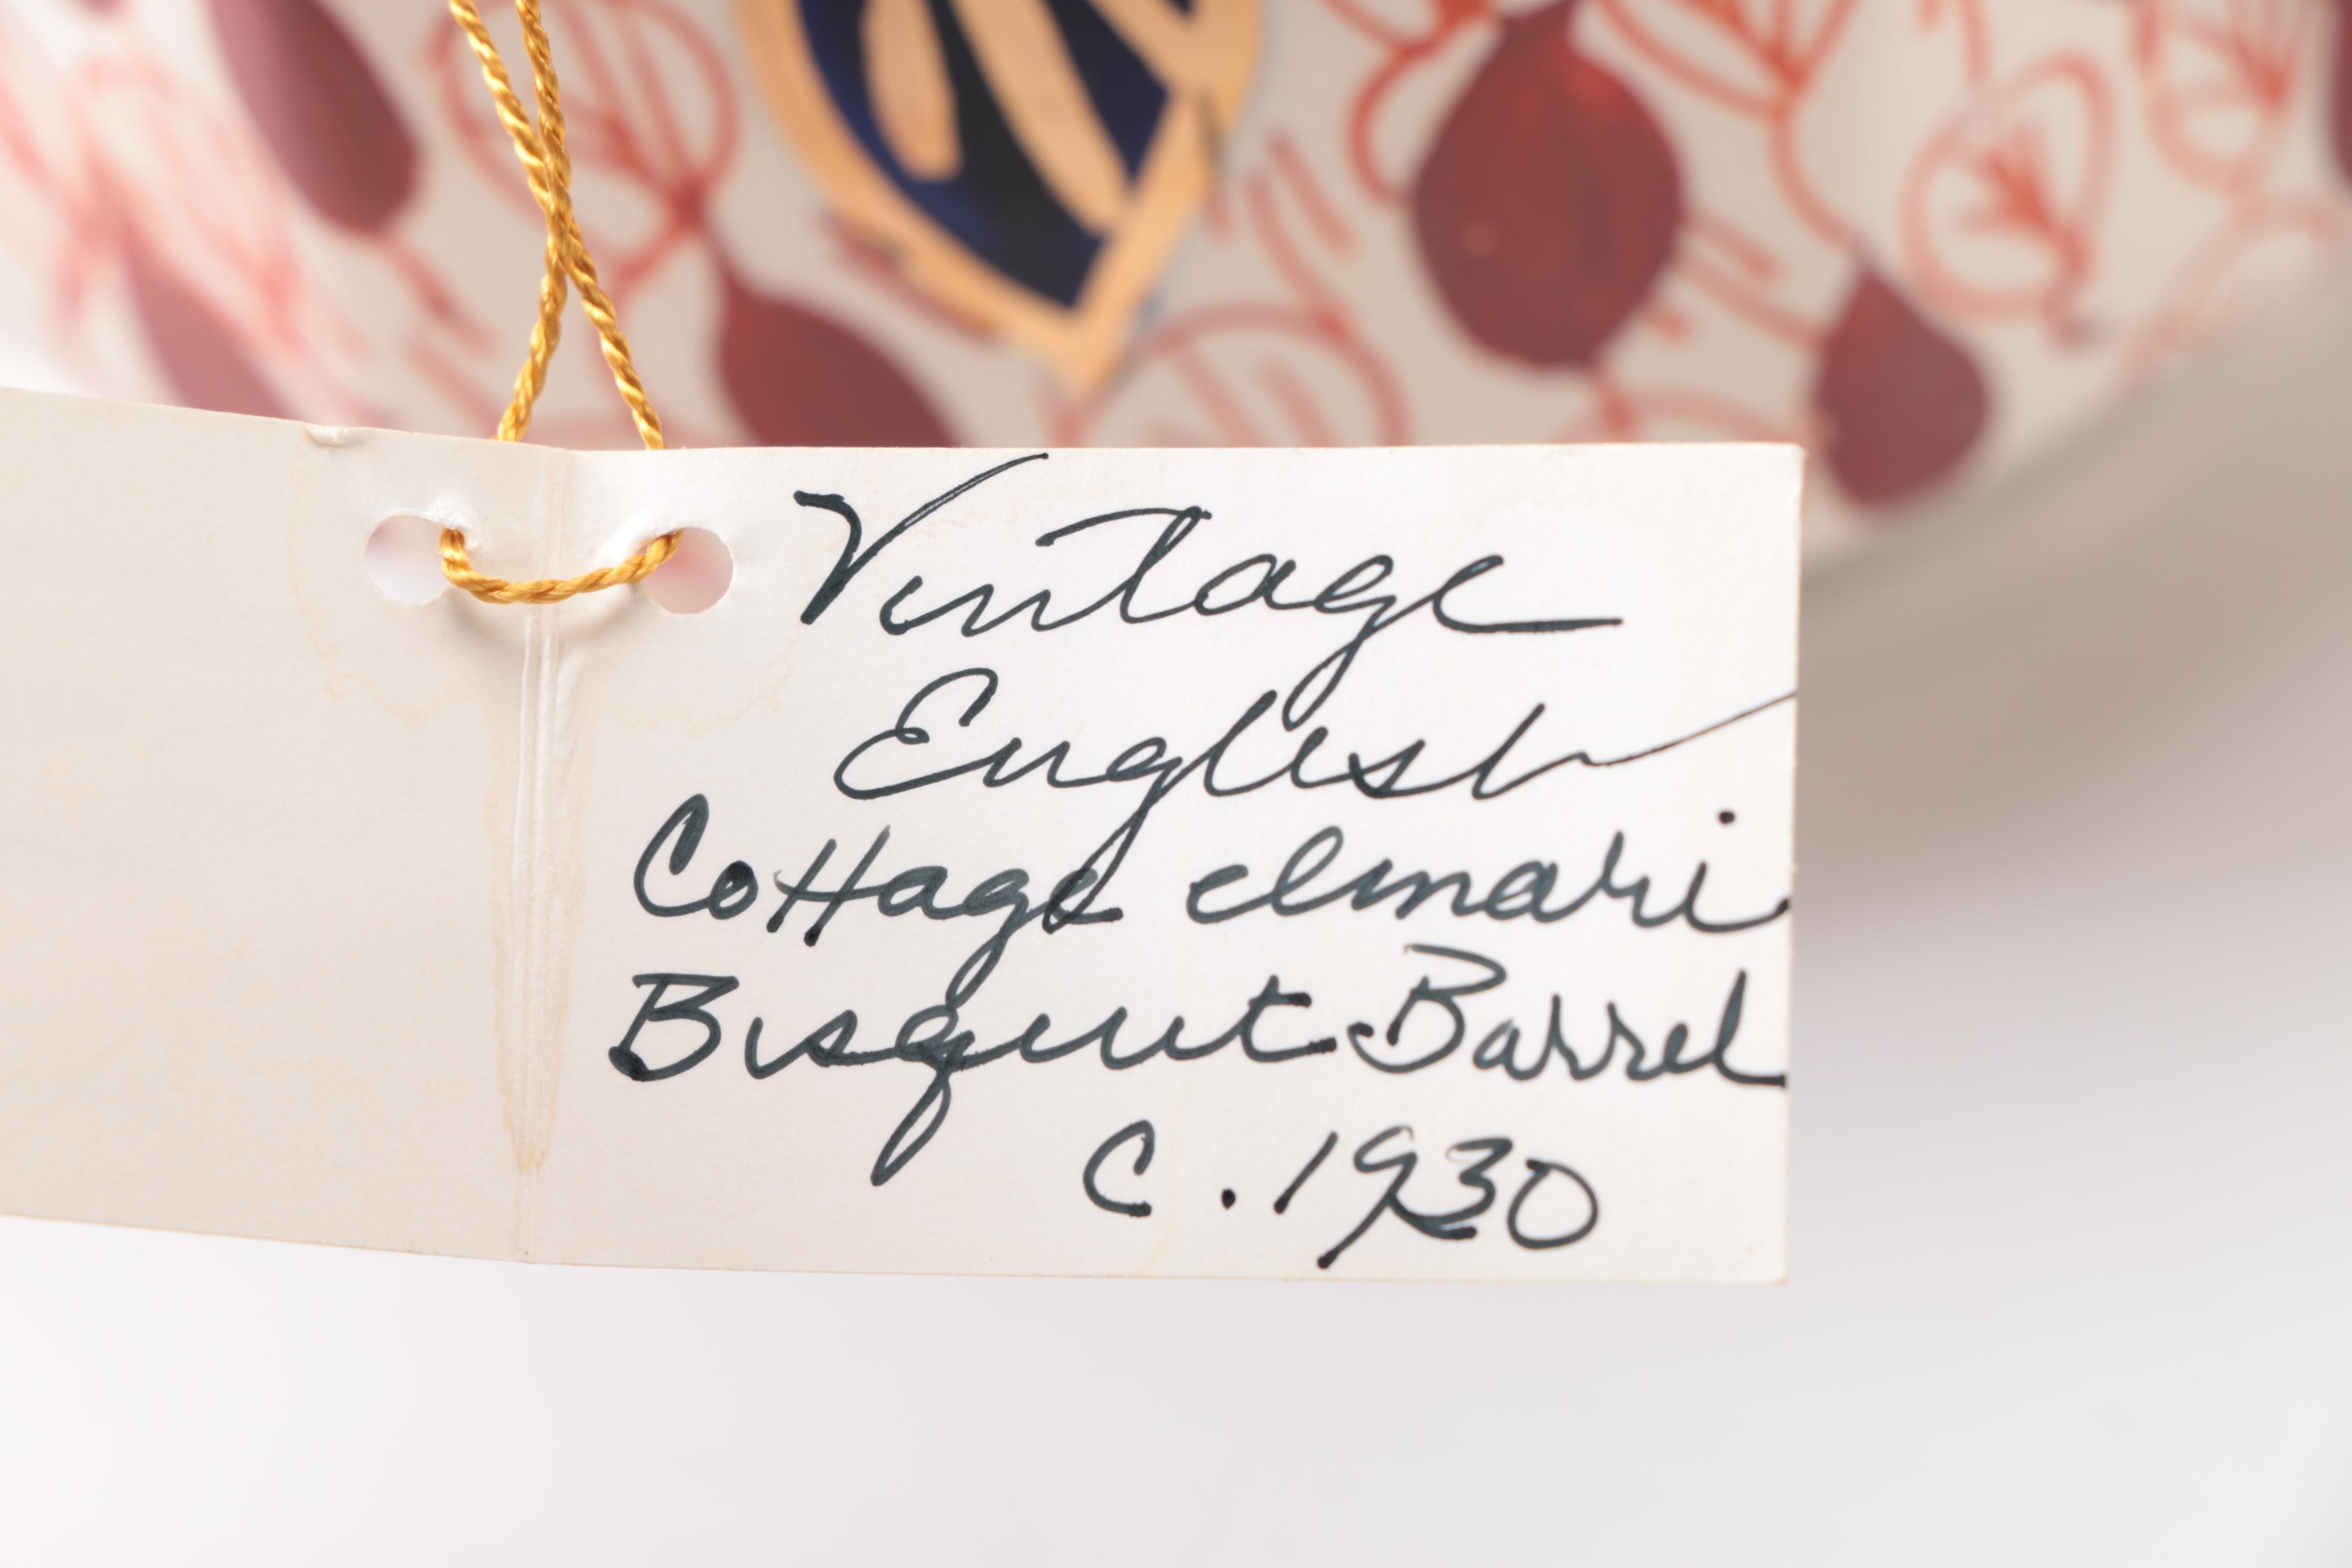 Vintage
English
Cottage Imari
Bisquit Barrel
C. 1930